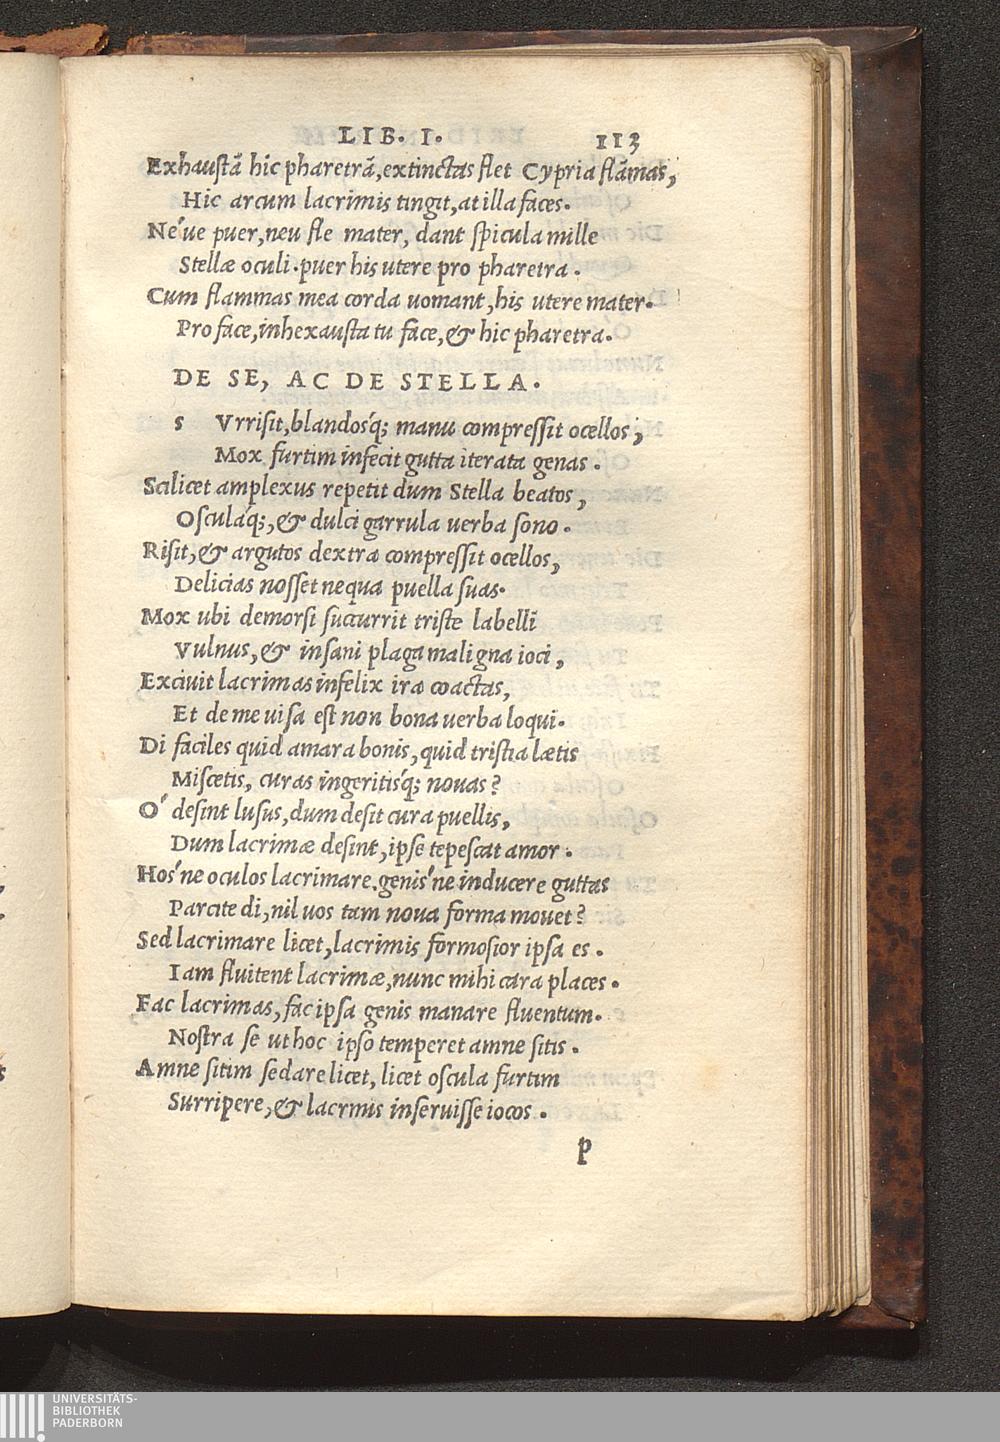 LIB. I. 113
Exhaustã hic pharetrã, extinctas flet Cypria flãmas,
Hic arcum lacrimis tingit, at illa faces.
Né ue puer, neu fle mater, dant spicula mille
Stellæ oculi. puer his utere pro pharetra.
Cum flammas mea corda uomant, his utere mater.
Pro face, inhexausta tu face, & hic pharetra.
DE SE, AC DE STELLA.
S Vrrisit, blandosq́; manu compressit ocellos,
Mox furtim infecit gutta iterata genas.
Scilicet amplexus repetit dum Stella beatos,
Osculaq́;, & dulci garrula uerba sono.
Risit, & argutos dextra compressit ocellos,
Delicias nosset nequa puella suas.
Mox ubi demorsi succurrit triste labelli
Vulnus, & insani plaga maligna ioci,
Exciuit lacrimas infelix ira coactas,
Et de me uisa est non bona uerba loqui.
Di faciles quid amara bonis, quid tristia lætis
Miscetis, curas ingeritisq́; nouas?
O' desint lusus, dum desit cura puellis,
Dum lacrimæ desint, ipse tepescat amor.
Hos'ne oculos lacrimare, genis'ne inducere guttas
Parcite di, nil uos tam noua forma mouet?
Sed lacrimare licet, lacrimis formosior ipsa es.
Iam fluitent lacrimæ, nunc mihi cara places.
Fac lacrimas, fac ipsa genis manare fluentum.
Nostra se ut hoc ipso temperet amne sitis.
Amne sitim sedare licet, licet oscula furtim
Surripere, & lacrmis inseruisse iocos.
p
UNIVERSITÄTS-
BIBLIOTHEK
PADERBORN